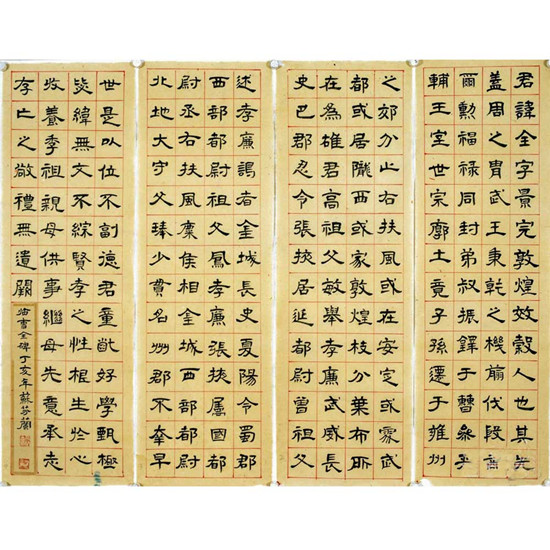 君諱全字景完敦煌效穀人也其先
蓋周之胄武王秉乾之機翦伐殷商
爾勳福祿同封弟叔振鐸于曹參夾
輔王室世宗廓土竟子孫遷于雍州
之郊分止右扶風或在安定或處武
都或居隴西或家敦煌枝分葉布所
在為雄君高祖父敏舉孝廉武威長
史巴郡忍令張掖居延都尉曾祖父
述孝廉謁者金城長史夏陽令蜀郡
西部都尉祖父鳳孝廉張掖屬國都
尉丞右扶風糜侯相金城西部都尉
北地大守父琫少貫名州郡不幸早
世是以位不副德君童齔好學甄極
毖緯無文不綜賢孝之性根生於心
收養季祖親母供事繼母先意承志
存亡之敬禮無遺闕
臨曹全碑丁亥年蘇芬蘭